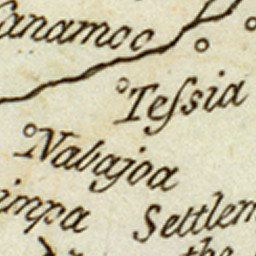 anamoc
Teſsia
Nabajoa
impa
Settlem
the